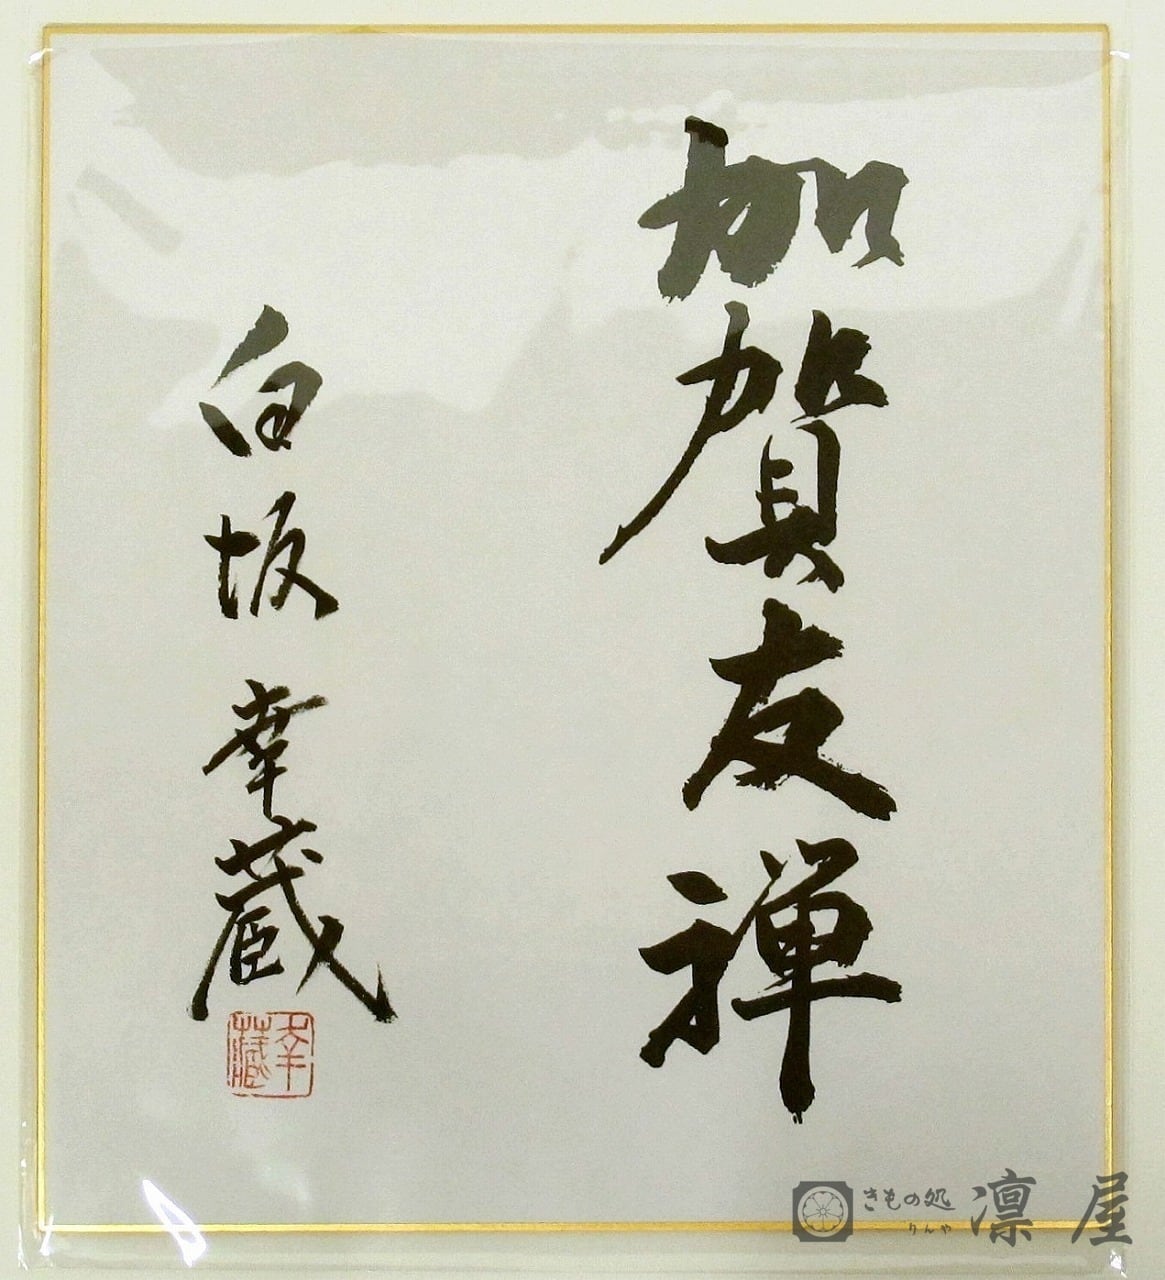 加賀友禅
白坂幸蔵
幸蔵
きもの処
りんや
凛屋